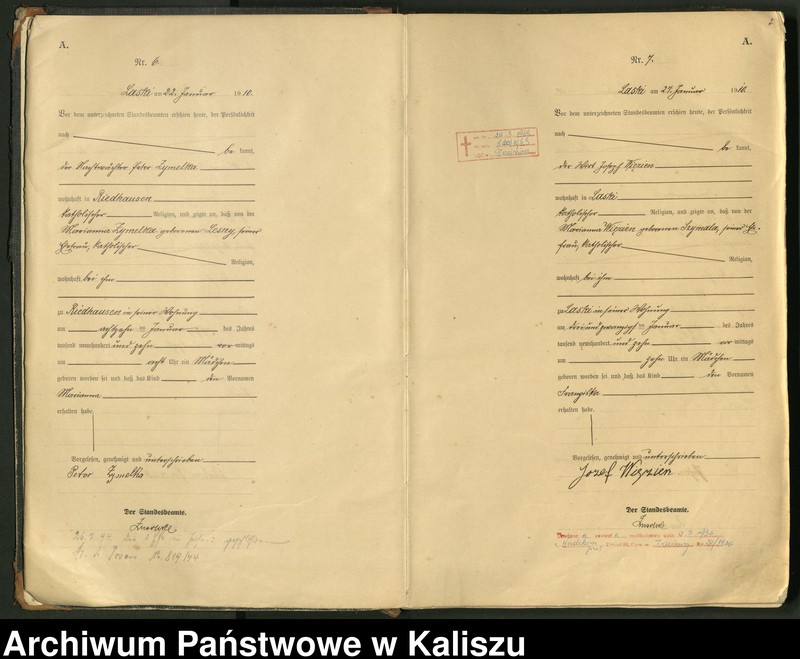 A.
Nr. 6.
Laski am 22. Januar 1910.
Vor dem unterzeichneten Standesbeamten erschien heute, der Persönlichkeit
nach
be kannt,
der Nachtwächter Peter Zymelka
wohnhaft in Riedhausen
katholischer Religion, und zeigte an, daß von der
Marianna Zymelka geborenen Lesny, seiner
Ehefrau, katholischer
Religion,
wohnhaft bei ihm
zu Riedhausen in seiner Wohnung
am achtzehn ten Januar des Jahres
tausend neunhundert und zehn vor mittags
um acht Uhr ein Mädchen
geboren worden sei und daß das Kind den Vornamen
Marianna
erhalten habe.
Vorgelesen, genehmigt und unterschrieben
Peter Zymelka
Der Standesbeamte.
Nr. 819/44
2
A.
Nr. 7.
Laski am 27. Januar 1910.
Vor dem unterzeichneten Standesbeamten erschien heute, der Persönlichkeit
nach
be kannt,
der Wirt Joseph Wiezien
wohnhaft in Laski
katholischer Religion, und zeigte an, daß von der
Marianna Wiezien geborenen Szymala, seiner Ehe-
frau, katholischer
Religion,
wohnhaft bei ihm
zu Laski in seiner Wohnung
am dreiundzwanzigsten Januar des Jahres
tausend neunhundert und zehn vor mittags
um zehn Uhr ein Mädchen
geboren worden sei und daß das Kind den Vornamen
Franziska
erhalten habe.
Vorgelesen, genehmigt und unterschrieben
Jozef Wiezien
Der Standesbeamte.
Archiwum Państwowe w Kaliszu